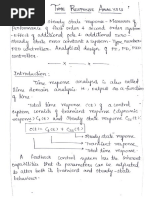 TIME RESPONSE ANALYSIS :
Steady state response - Measures of
performance of first order & second order system
- Effect of additional pole & additional zero -
Steady state error constant & system - Type number
PID controller - Analytical design of PD, PI, PID
controller.
— × — × —
Introduction :-
Time response analysis is also called
Time domain analysis. It is the output of a
function of time.
Total time response of a control
system
response) C(t) and Steady-state response
C(t) =
→ Steady-state response
→ transient response
→ Total response
A feedback control system has the inherent
capabilities that its parameters can be adjusted
to alter both its transient and steady-state
behaviour.